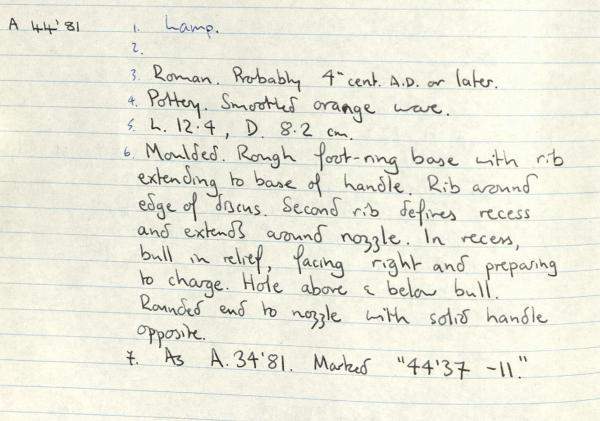 A 44'81 1. Lamp.
2.
3. Roman. Probably 4th cent. A.D. or later.
4. Pottery. Smoothed orange ware.
5. L. 12.4, D. 8.2 cm.
6. Moulded. Rough foot-ring base with rib
extending to base of handle. Rib around
edge of discus. Second rib defines recess
and extends around nozzle. In recess,
bull in relief, facing right and preparing
to charge. Hole above & below bull.
Rounded end to nozzle with solid handle
opposite.
7. As A.34'81. Marked "44'37 -11."